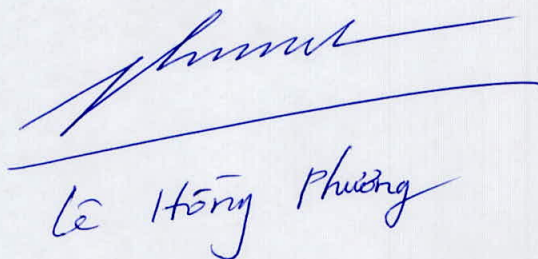 Lê Hồng Phương